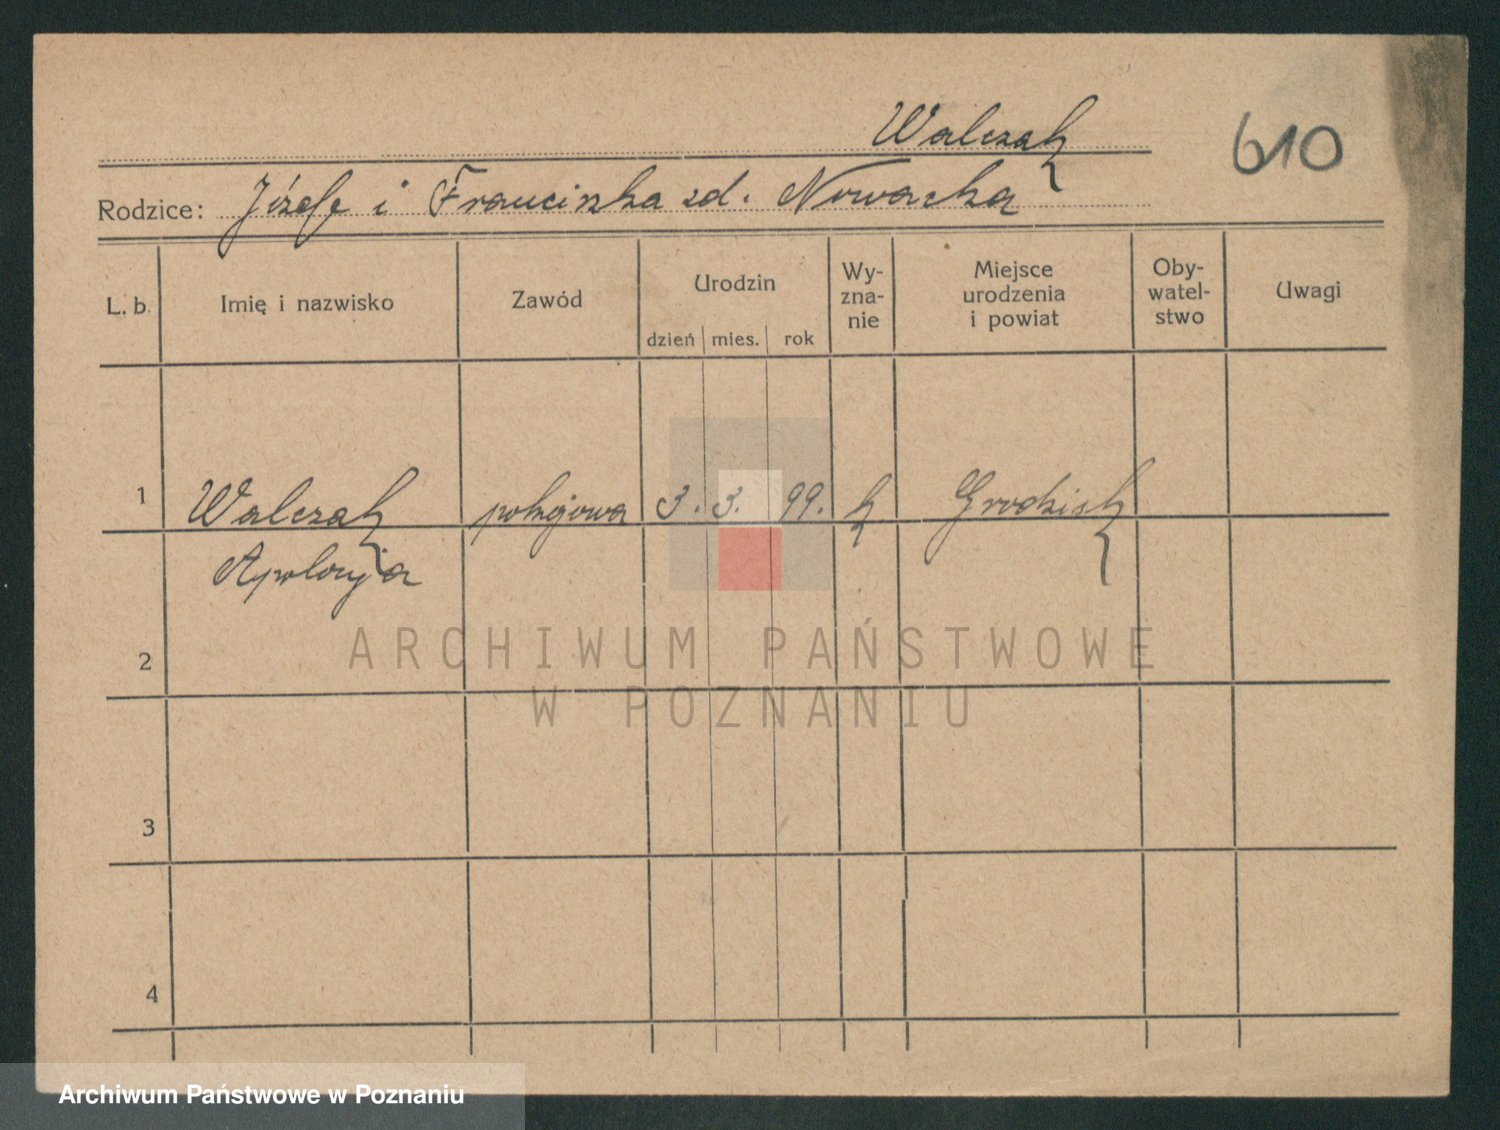 Walczak
610
Rodzice: Józefe i Franciszka zd. Nowacka
L. b. Imię i nazwisko Zawód Urodzin Wy- Miejsce Oby- Uwagi
zna- urodzenia watel-
nie i powiat stwo
dzień mies. rok
1 Walczak pokojowa 3. 3. 99. k Grodzisk
Apolonja
2
ARCHIWUM PAŃSTWOWE
W POZNANIU
3
4
Archiwum Państwowe w Poznaniu